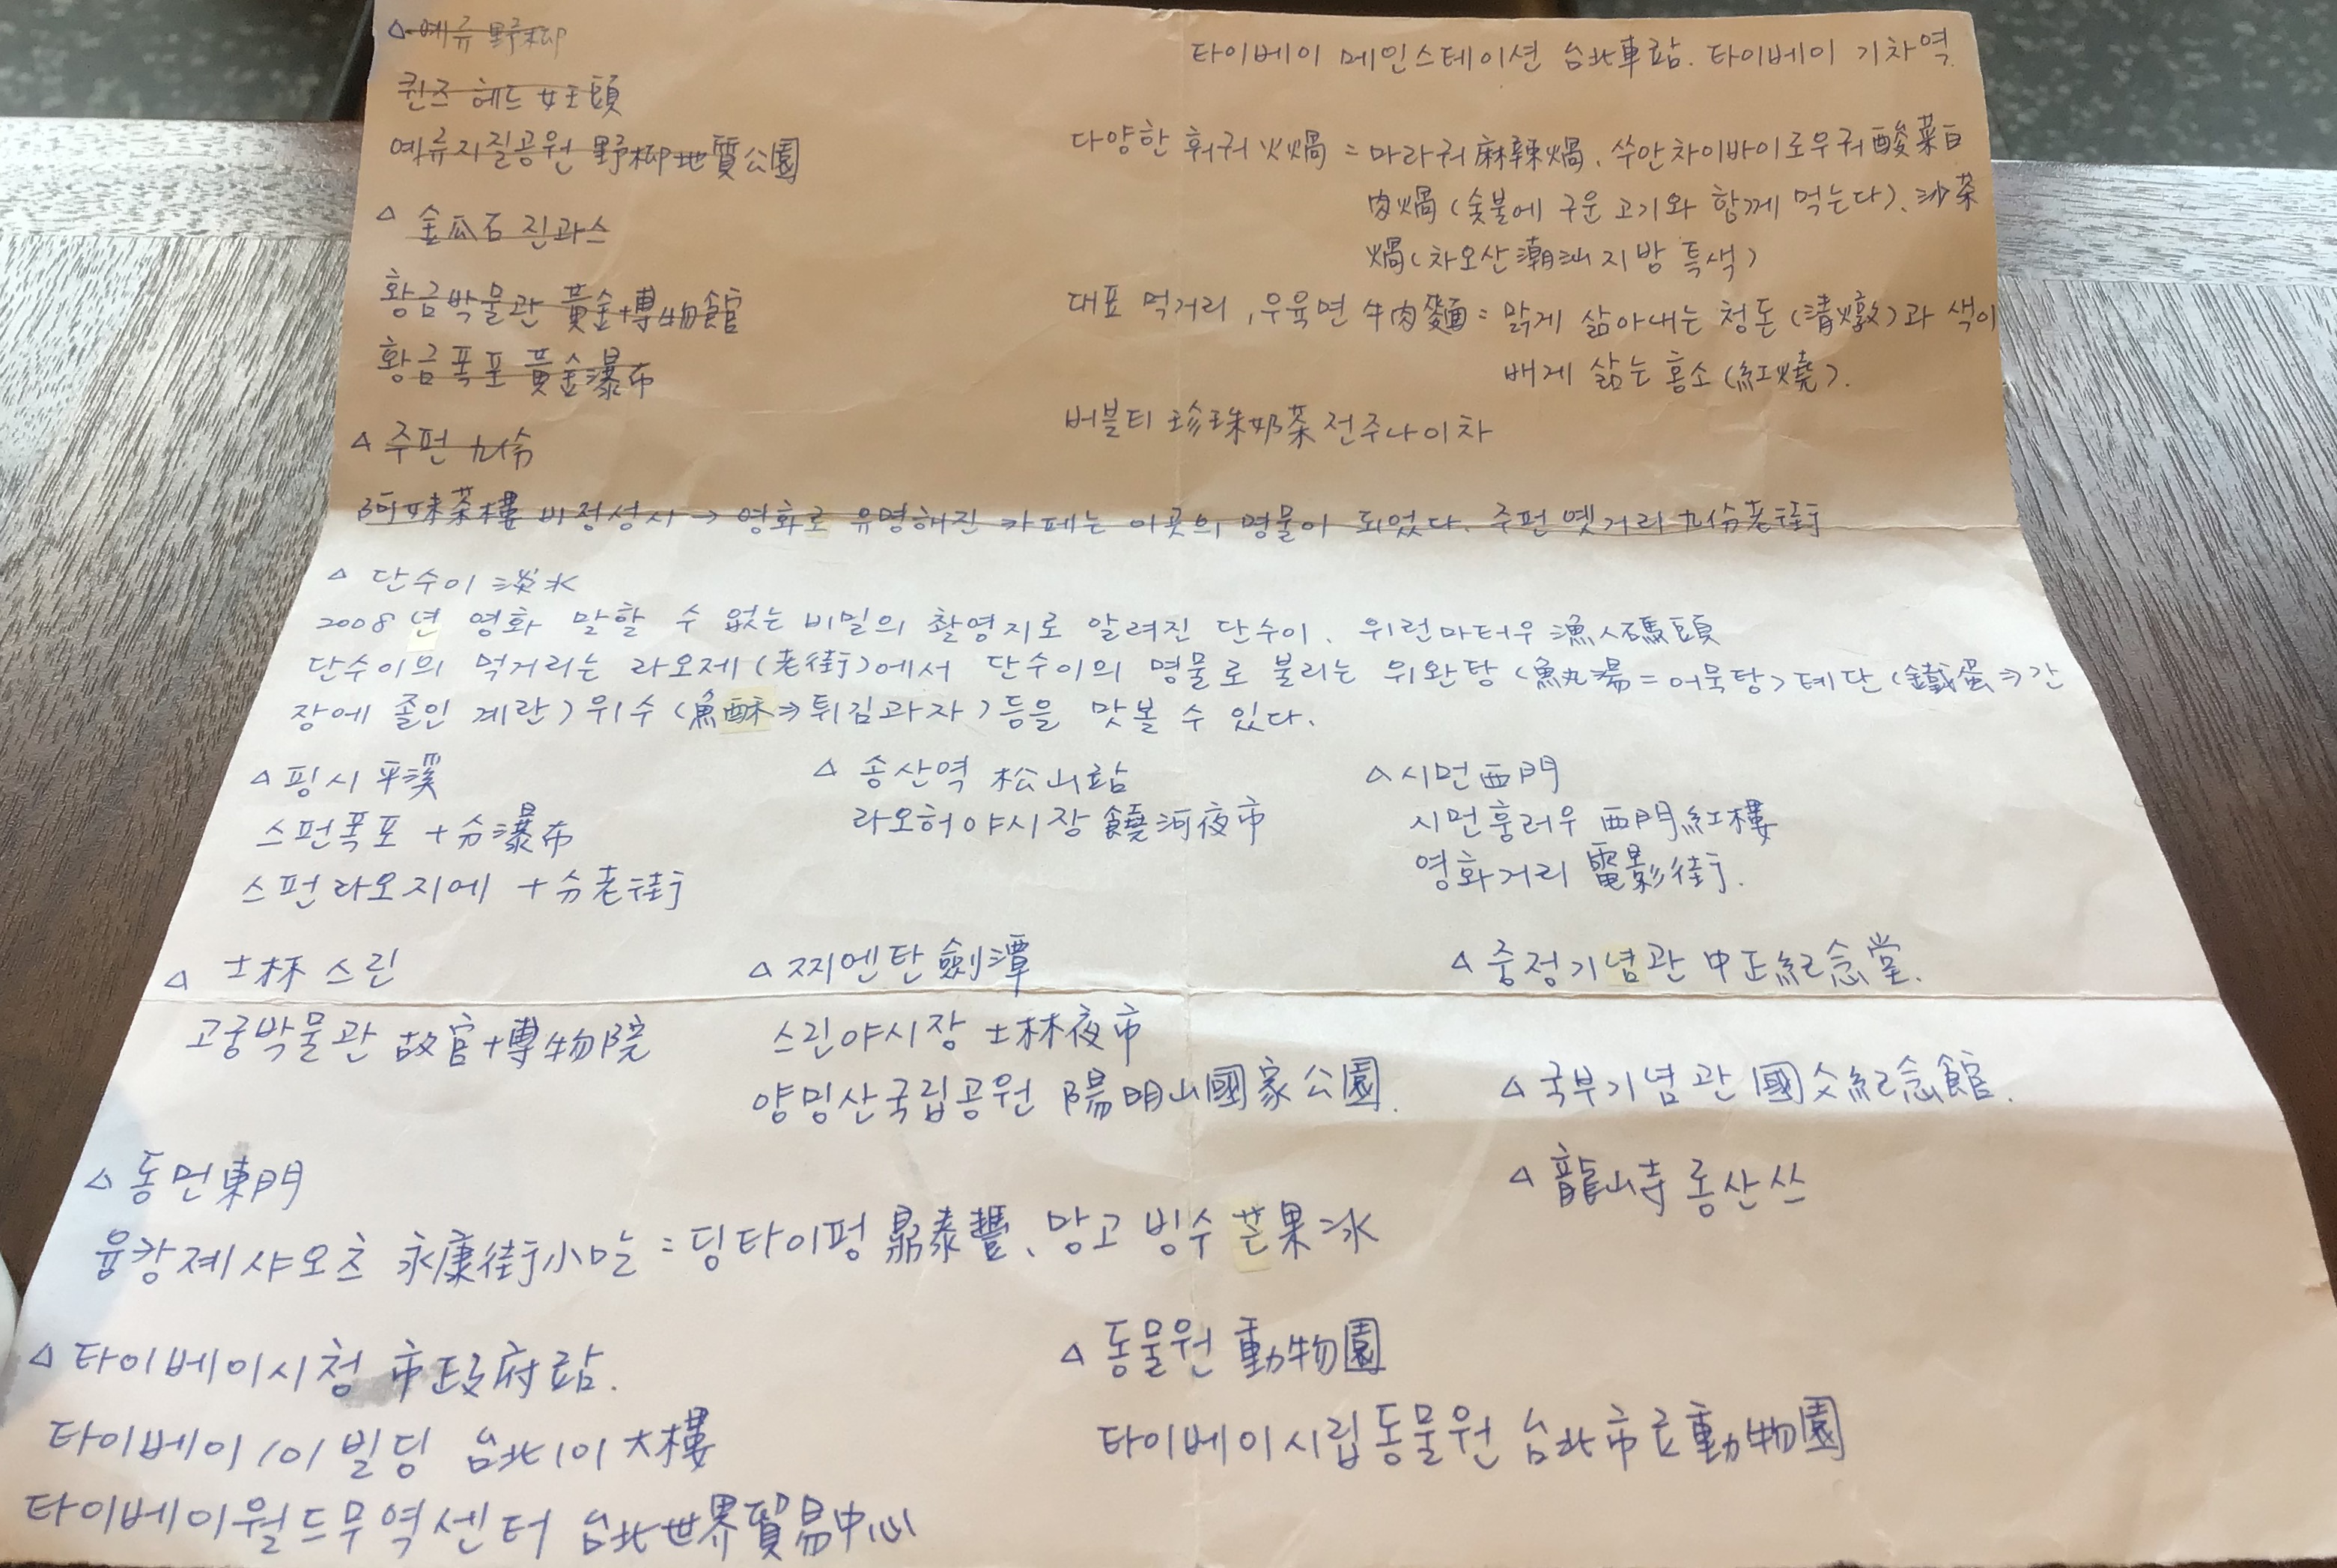 △ 예류 野柳
퀸즈 헤드 女王頭
예류지질공원 野柳地質公園
△ 金瓜石 진과스
황금박물관 黃金博物館
황금폭포 黃金瀑布
△ 주펀 九份
阿妹茶樓 비정성시 → 영화로 유명해진 카페는 이곳의 명물이 되었다. 주펀 옛거리 九份老街
타이베이 메인스테이션 台北車站. 타이베이 기차역
다양한 훠궈 火焆 = 마라궈 麻辣焆, 쑤안차이바이로우궈 酸菜白
肉焆 (숯불에 구운 고기와 함께 먹는다), 沙茶
焆 (차오산 潮汕 지방 특색)
대표 먹거리, 우육면 牛肉麵 = 맑게 삶아내는 청돈 (清燉)과 색이
배게 삶는 홍소 (紅燒).
버블티 珍珠奶茶 전주나이차
△ 단수이 淡水
2008년 영화 말할 수 없는 비밀의 촬영지로 알려진 단수이. 위런마터우 漁人碼頭
단수이의 먹거리는 라오제 (老街)에서 단수이의 명물로 불리는 위완탕 (魚丸湯 = 어묵탕) 톄단 (鐵蛋 ⇒ 간
장에 졸인 계란) 위수 (魚酥 ⇒ 튀김과자) 등을 맛볼 수 있다.
△ 핑시 平溪
스펀폭포 十分瀑布
스펀라오지에 十分老街
△ 송산역 松山站
라오허야시장 饒河夜市
△ 시먼 西門
시먼훙러우 西門紅樓
영화거리 電影街.
△ 士林 스린
고궁박물관 故宮博物院
△ 찌엔탄 劍潭
스린야시장 士林夜市
양밍산국립공원 陽明山國家公園.
△ 중정기념관 中正紀念堂.
△ 국부기념관 國父紀念館.
△ 龍山寺 롱산쓰
△ 동먼 東門
융캉제샤오츠 永康街小吃 = 딩타이펑 鼎泰豐, 망고 빙수 芒果冰
△ 타이베이시청 市政府站.
타이베이 101 빌딩 台北101大樓
타이베이월드무역센터 台北世界貿易中心
△ 동물원 動物園
타이베이시립동물원 台北市立動物園